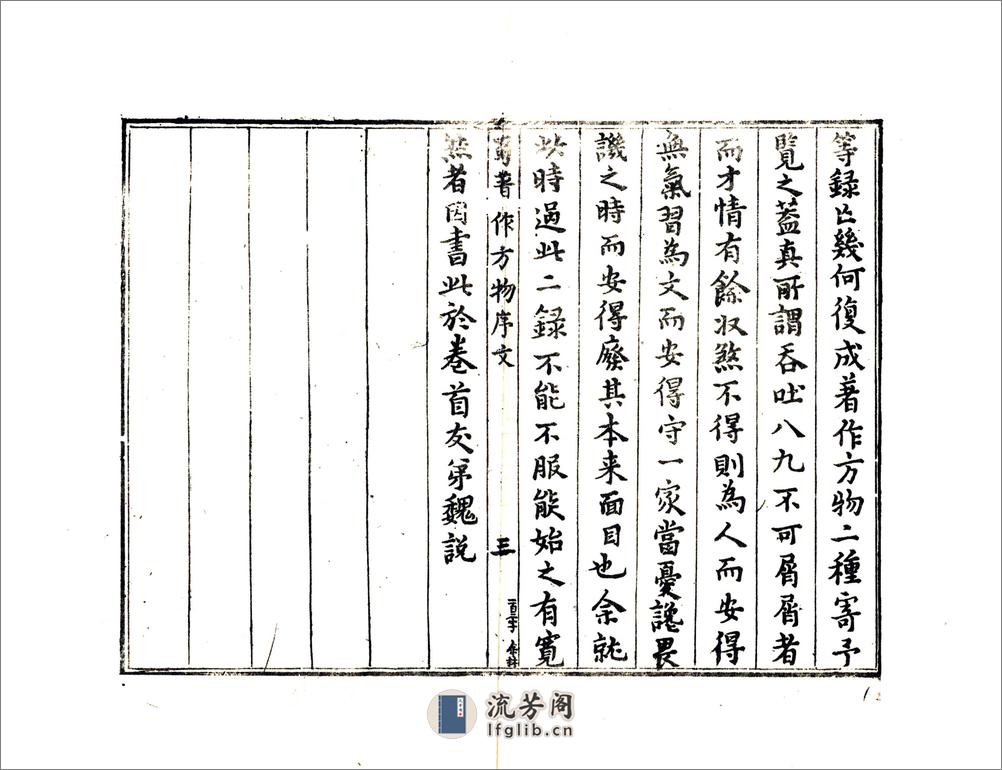 等録亡幾何復成著作方物二種寄予
覽之葢真所謂吞吐八九不可屑屑者
而才情有餘収煞不得則為人而安得
無氣習為文而安得守一家當憂讒畏
譏之時而安得廢其本来面目也余就
此時過此二録不能不服能始之有寛
蜀著作方物序文
三
然者因書此於卷首友弟魏說
流芳阁
lfglib.cn